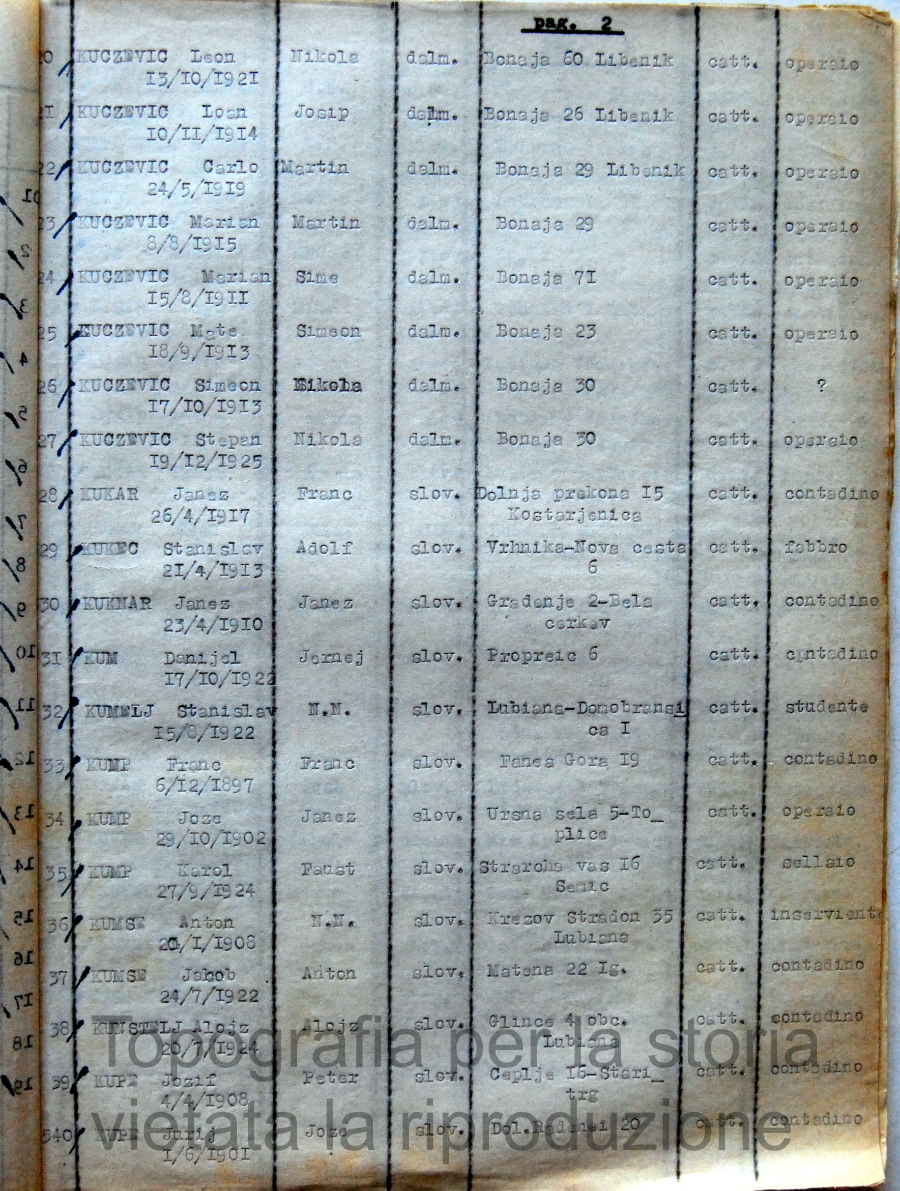 pag. 2
20 KUCZEVIC Leon Nikola dalm. Bonaja 60 Libenik catt. operaio
13/10/1921
21 KUCZEVIC Loan Josip dalm. Bonaja 26 Libenik catt. operaio
10/11/1914
22 KUCZEVIC Carlo Martin dalm. Bonaja 29 Libenik catt. operaio
24/5/1919
23 KUCZEVIC Marian Martin dalm. Bonaja 29 catt. operaio
8/8/1915
24 KUCZEVIC Marian Sime dalm. Bonaja 71 catt. operaio
15/8/1911
25 KUCZEVIC Mate Simeon dalm. Bonaja 23 catt. operaio
18/9/1913
26 KUCZEVIC Simeon Nikola dalm. Bonaja 30 catt. ?
17/10/1913
27 KUCZEVIC Stepan Nikola dalm. Bonaja 30 catt. operaio
19/12/1925
28 KUKAR Janez Franc slov. Dolnja prekona 15 catt. contadino
26/4/1917 Kostarjenica
29 KUKEC Stanislav Adolf slov. Vrhnika-Nova cesta catt. fabbro
21/4/1913 6
30 KUKNAR Janez Janez slov. Gradenje 2-Bela catt. contadino
23/4/1910 cerkev
31 KUM Danijel Jernej slov. Propreic 6 catt. cntadino
17/10/1922
32 KUMELJ Stanislav N.N. slov. Lubiana-Domobransi catt. studente
15/8/1922 ca I
33 KUMP Franc Franc slov. Fanea Gora 19 catt. contadino
6/12/1897
34 KUMP Joze Janez slov. Ursna sela 5-To_ catt. operaio
29/10/1902 plice
35 KUMP Karol Faust slov. Strarcha vas 16 catt. sellaio
27/9/1924 Semic
36 KUMSE Anton N.N. slov. Krezov Stradon 35 catt. inserviente
/1/1908 Lubiana
37 KUMSE Jakob Anton slov. Matena 22 Ig. catt. contadino
24/7/1922
38 KUNSTELJ Alojz Alojz slov. Glince 4 obc. catt. contadino
20/7/1924 Lubiana
39 KUPE Jozif Peter slov. Ceplje 16-Stari_ catt. contadino
4/4/1908 trg
540 KUPE Jurij Joze slov. Dol.Radenci 20 catt. contadino
1/6/1901
Topografia per la storia
vietata la riproduzione